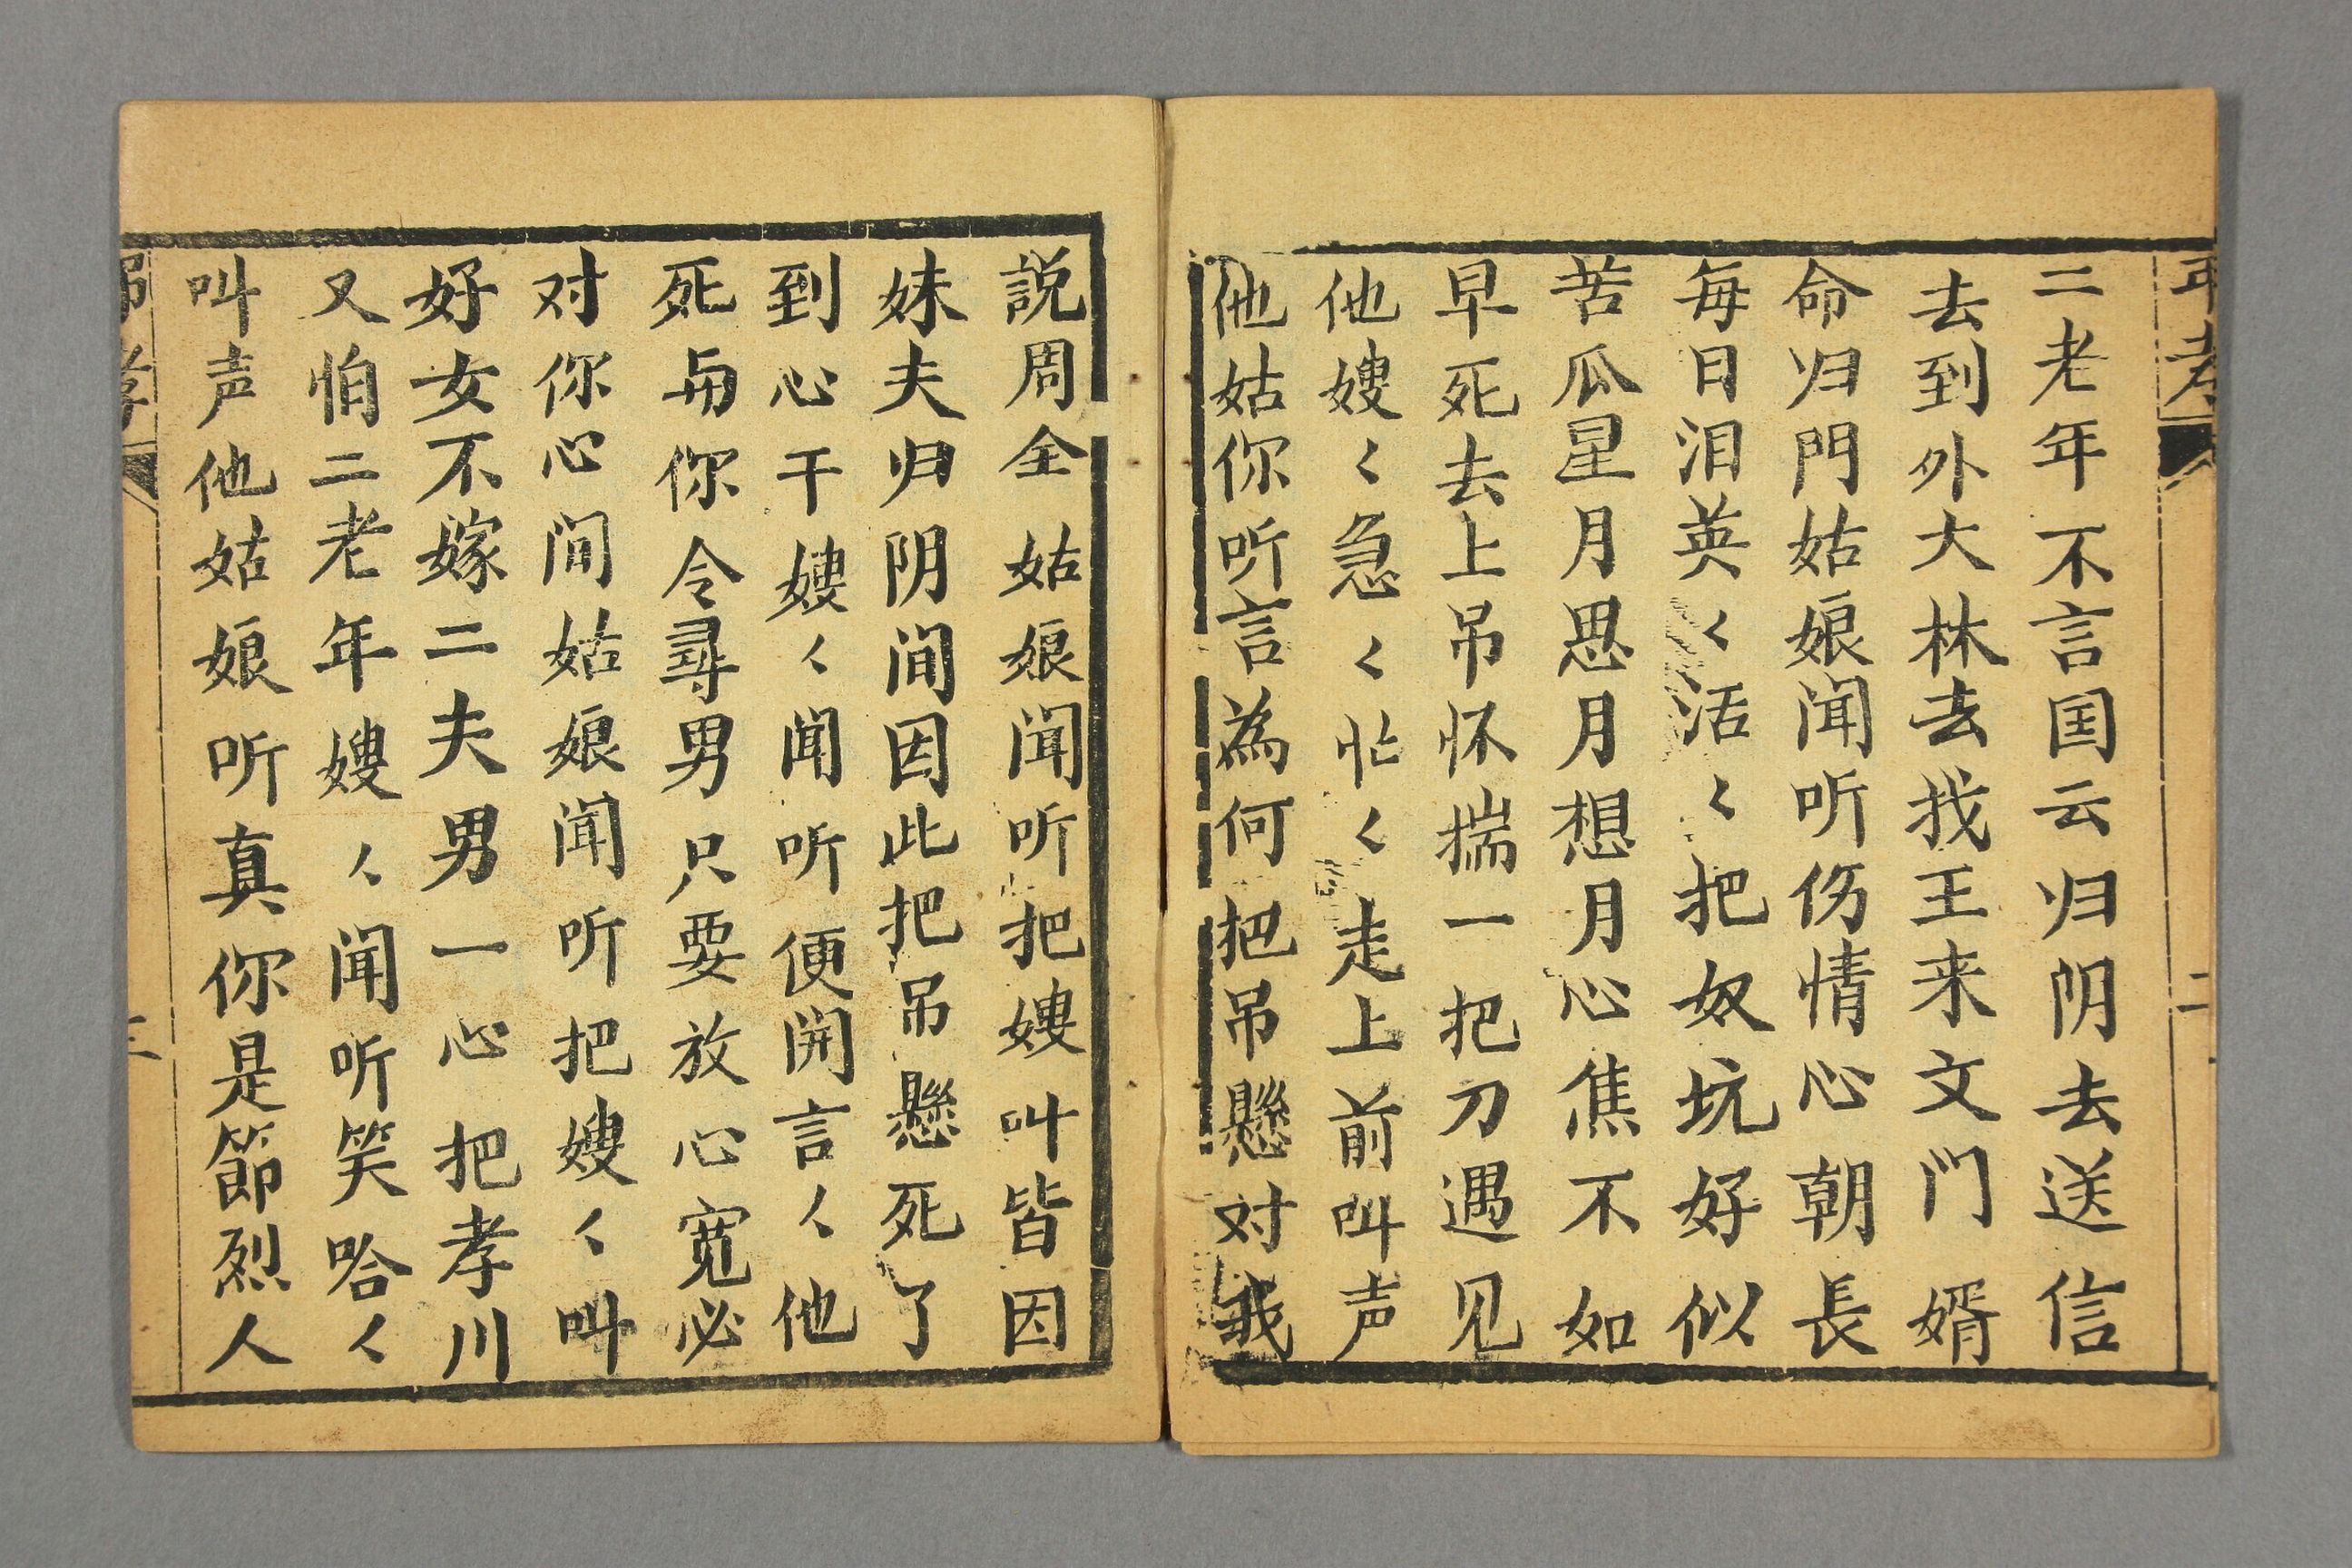 二老年不言国云归阴去送信
去到外大林去找王来文门婿
命归門姑娘闻听伤情心朝長
每日泪英く活く把奴坑好似
苦瓜星月思月想月心焦不如
早死去上吊怀揣一把刀遇见
他嫂く急く忙く走上前叫声
他姑你听言為何把吊懸对我
説周全姑娘闻听把嫂叫皆因
妹夫归阴间因此把吊懸死了
到心干嫂く闻听便開言く他
死与你令尋男只要放心宽必
对你心间姑娘闻听把嫂く叫
好女不嫁二夫男一心把孝川
又怕二老年嫂く闻听笑哈く
叫声他姑娘听真你是節烈人